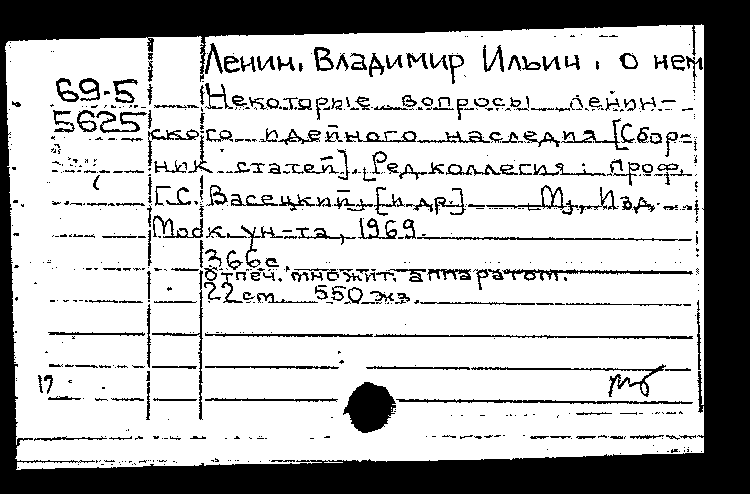 Ленин, Владимир Ильич, о нем
69-5
5625
Некоторые вопросы ленин-
ского идейного наследия [Сбор-
ник статей]. [Ред.коллегия: проф.
Г.С. Васецкий, [и др.] М., Изд.
Моск. ун-та, 1969.
366с.
Отпеч. множит. аппаратом.
22 см. 550 экз.
17